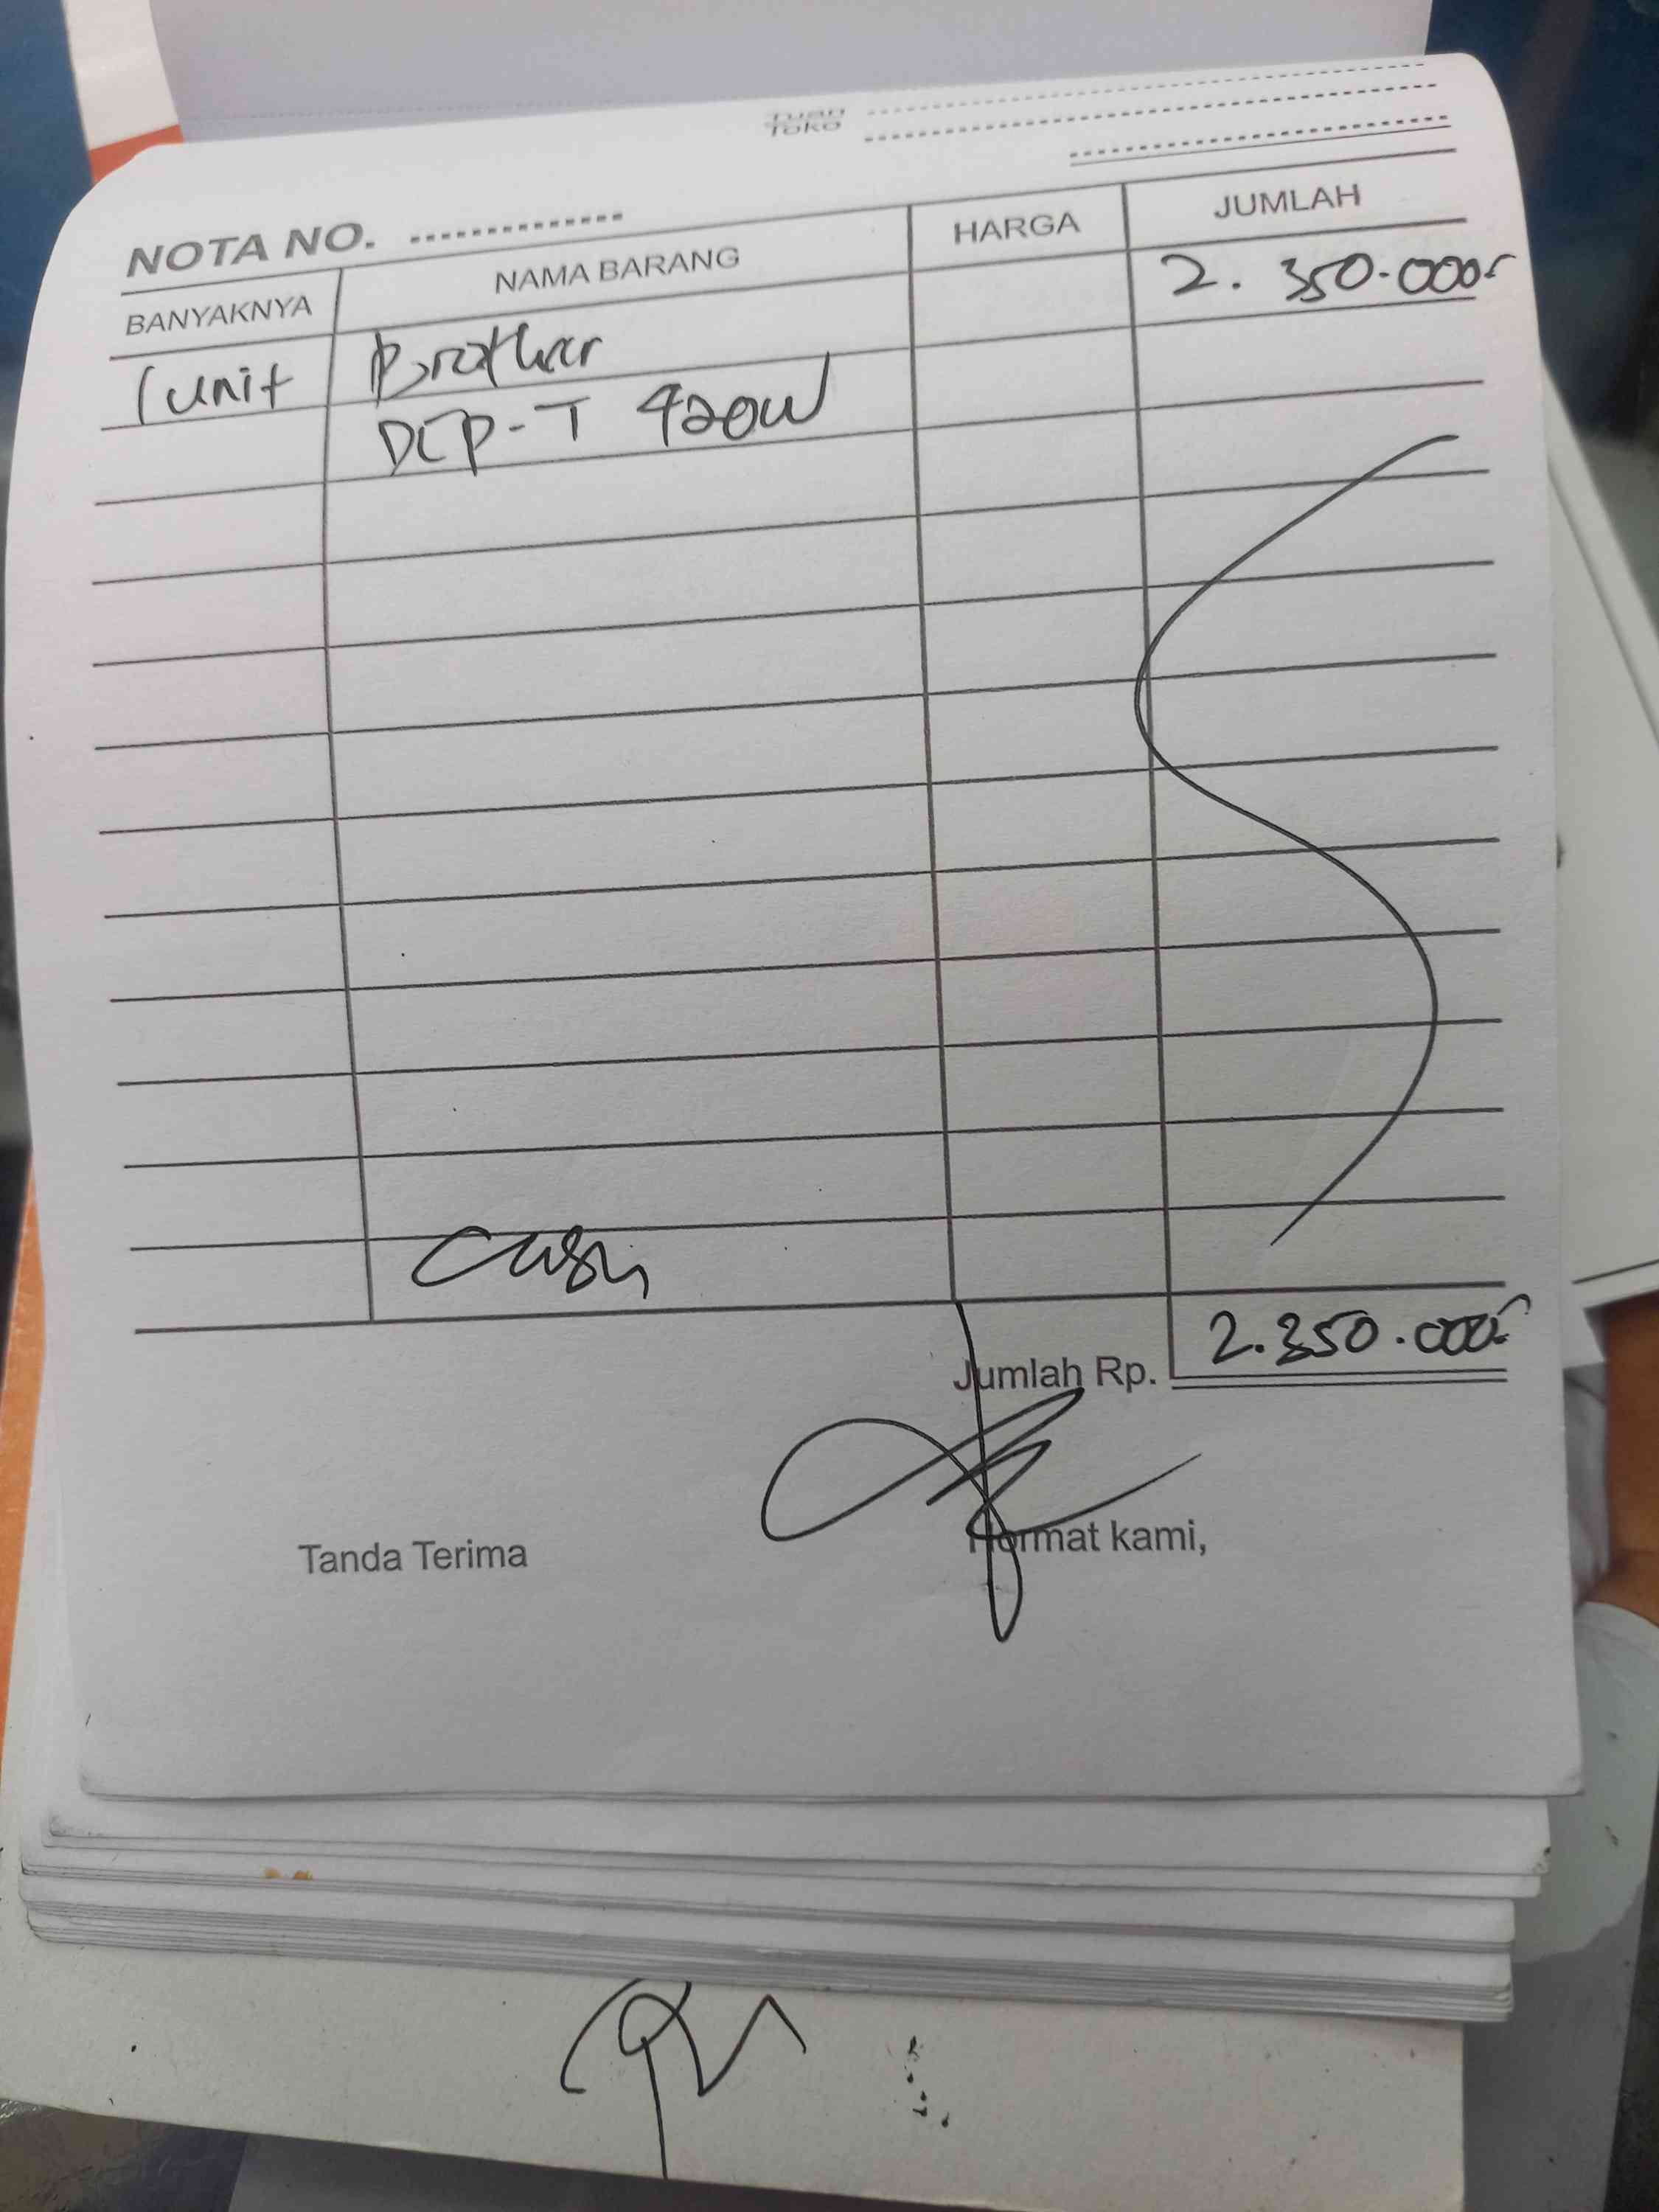 Tuan
Toko
NOTA NO.
BANYAKNYA NAMA BARANG HARGA JUMLAH
1 unit Brother 2.350.000,-
DCP-T 420W
Cash
Jumlah Rp. 2.350.000,-
Tanda Terima Hormat kami,